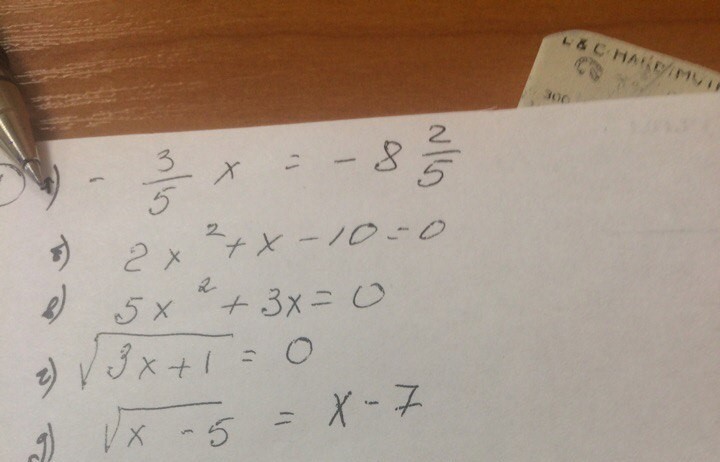 L & C·HARDTMUTH
300
1 а) - 3/5 x = - 8 2/5
б) 2x² + x - 10 = 0
в) 5x² + 3x = 0
г) √(3x + 1) = 0
д) √(x - 5) = x - 7